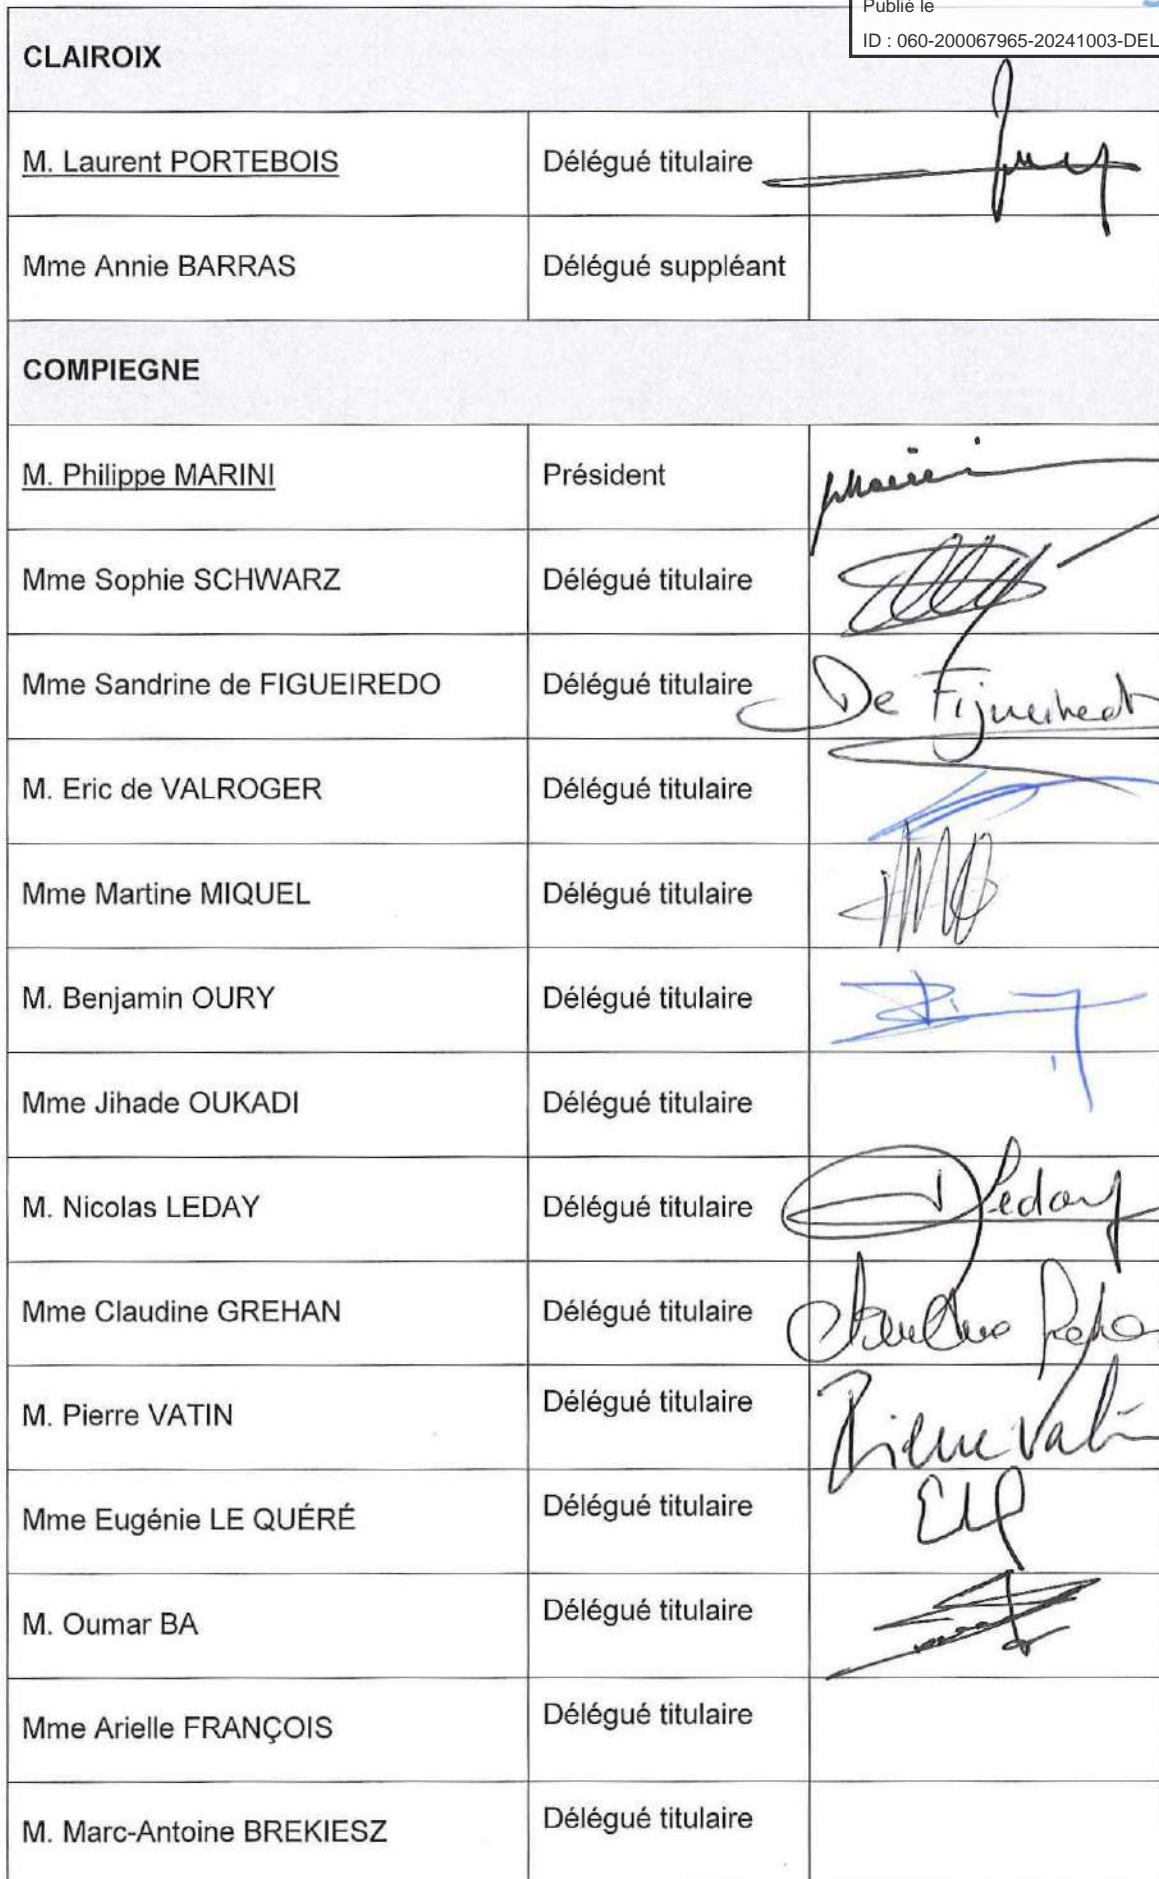 Publié le
ID : 060-200067965-20241003-DEL
CLAIROIX
M. Laurent PORTEBOIS Délégué titulaire
Mme Annie BARRAS Délégué suppléant
COMPIEGNE
M. Philippe MARINI Président
Mme Sophie SCHWARZ Délégué titulaire
Mme Sandrine de FIGUEIREDO Délégué titulaire De Figueiredo
M. Eric de VALROGER Délégué titulaire
Mme Martine MIQUEL Délégué titulaire
M. Benjamin OURY Délégué titulaire
Mme Jihade OUKADI Délégué titulaire
M. Nicolas LEDAY Délégué titulaire Leday
Mme Claudine GREHAN Délégué titulaire
M. Pierre VATIN Délégué titulaire Pierre Vatin
Mme Eugénie LE QUÉRÉ Délégué titulaire ELQ
M. Oumar BA Délégué titulaire
Mme Arielle FRANÇOIS Délégué titulaire
M. Marc-Antoine BREKIESZ Délégué titulaire